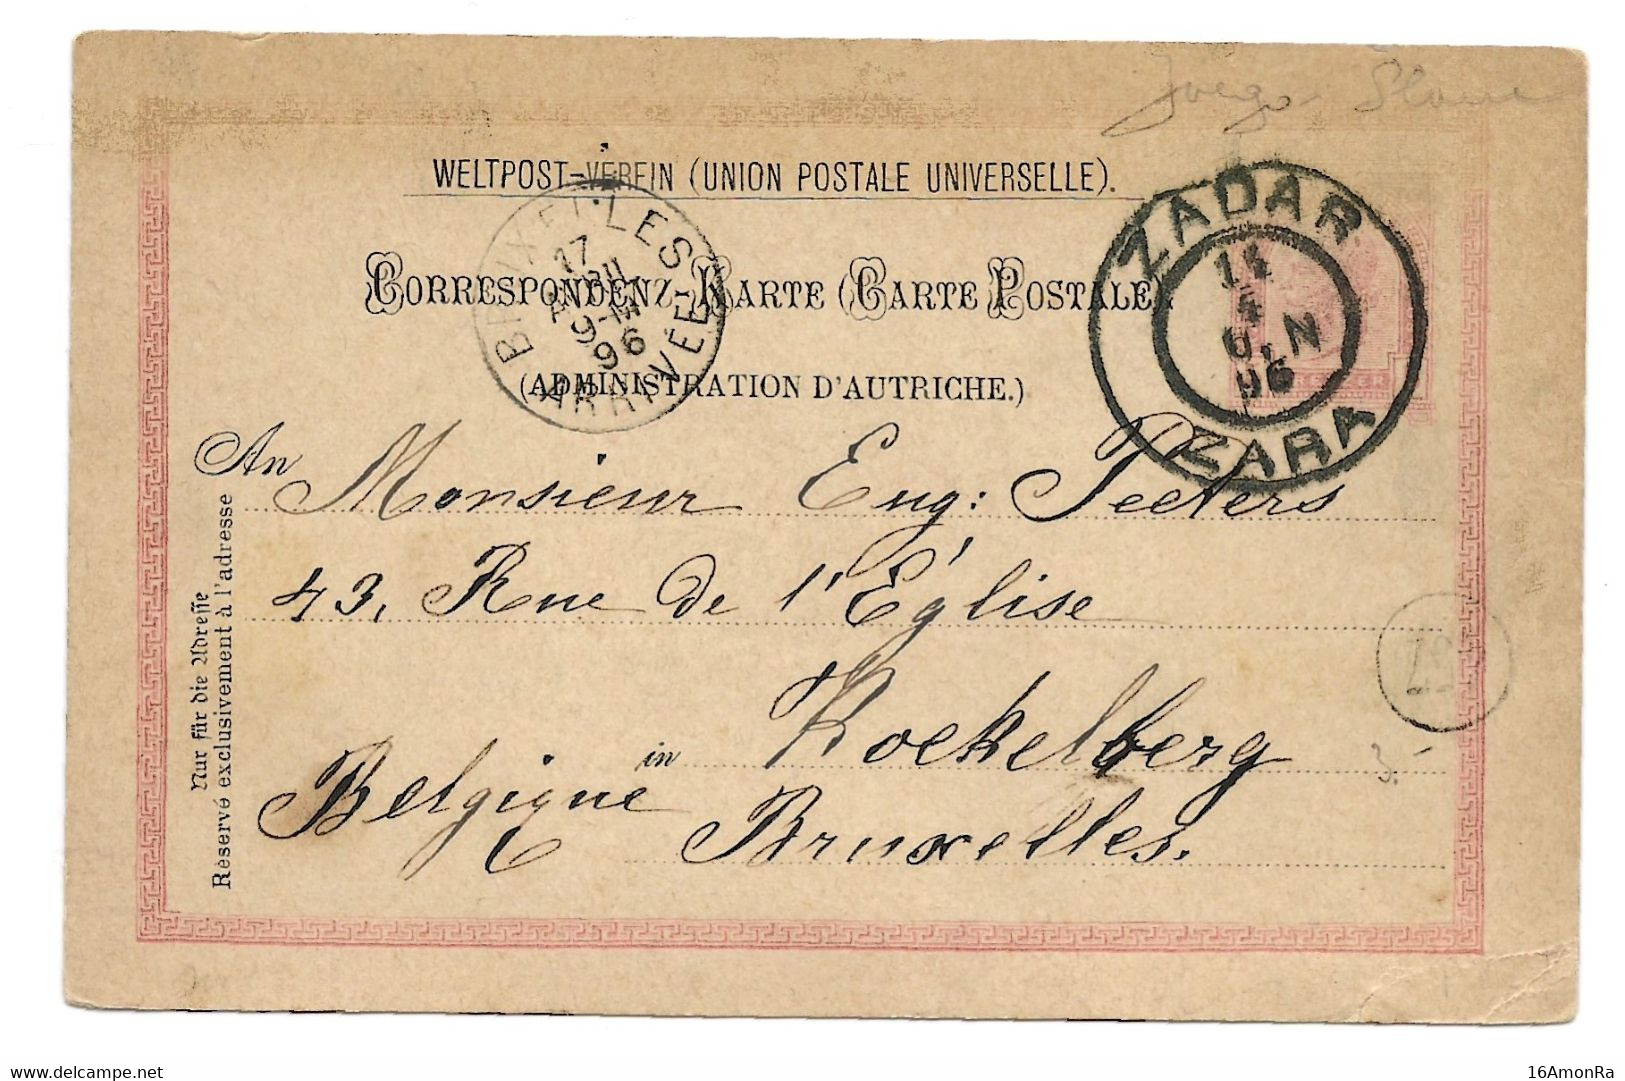 WELTPOST-VEREIN (UNION POSTALE UNIVERSELLE).
CORRESPONDENZ-KARTE (CARTE POSTALE)
(ADMINISTRATION D'AUTRICHE.)
ZADAR
14
4
96
ZARA
BRUXELLES
17
9-M
96
ARRIVÉE
An Monsieur Eug: Peeters
43, Rue de l'Église
in Koekelberg
Belgique Bruxelles.
Nur für die Adresse
Réservé exclusivement à l'adresse
3.-
www.delcampe.net
16AmonRa